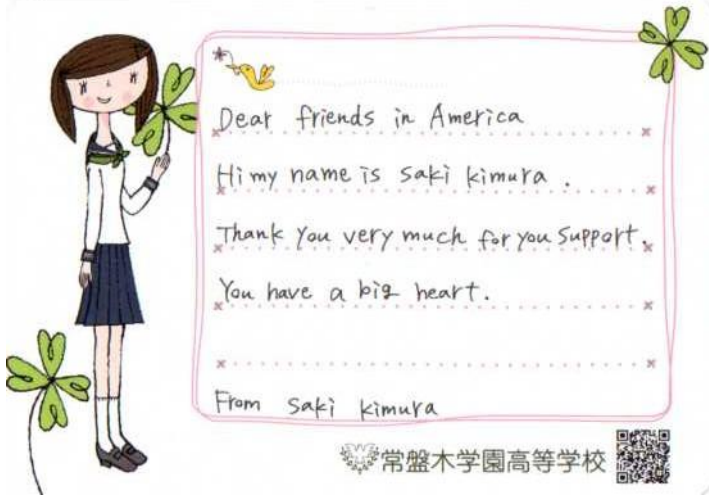 Dear friends in America
Hi my name is saki kimura .
Thank you very much for you support.
You have a big heart.
From saki kimura
常盤木学園高等学校